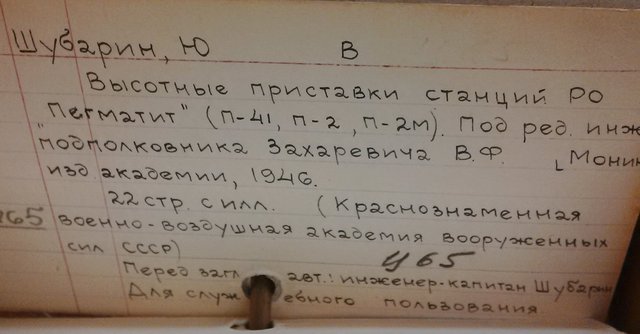 Шубарин, Ю В
Высотные приставки станций РО
„Пегматит" (п-41, п-2, п-2м). Под ред. инж
подполковника Захаревича В.Ф. Монин
изд академии, 1946.
22 стр. с илл. (Краснознаменная
465 военно-воздушная академия вооруженных
сил СССР) Ц65
Перед загл авт.: инженер-капитан Шубарин
Для служебного пользования